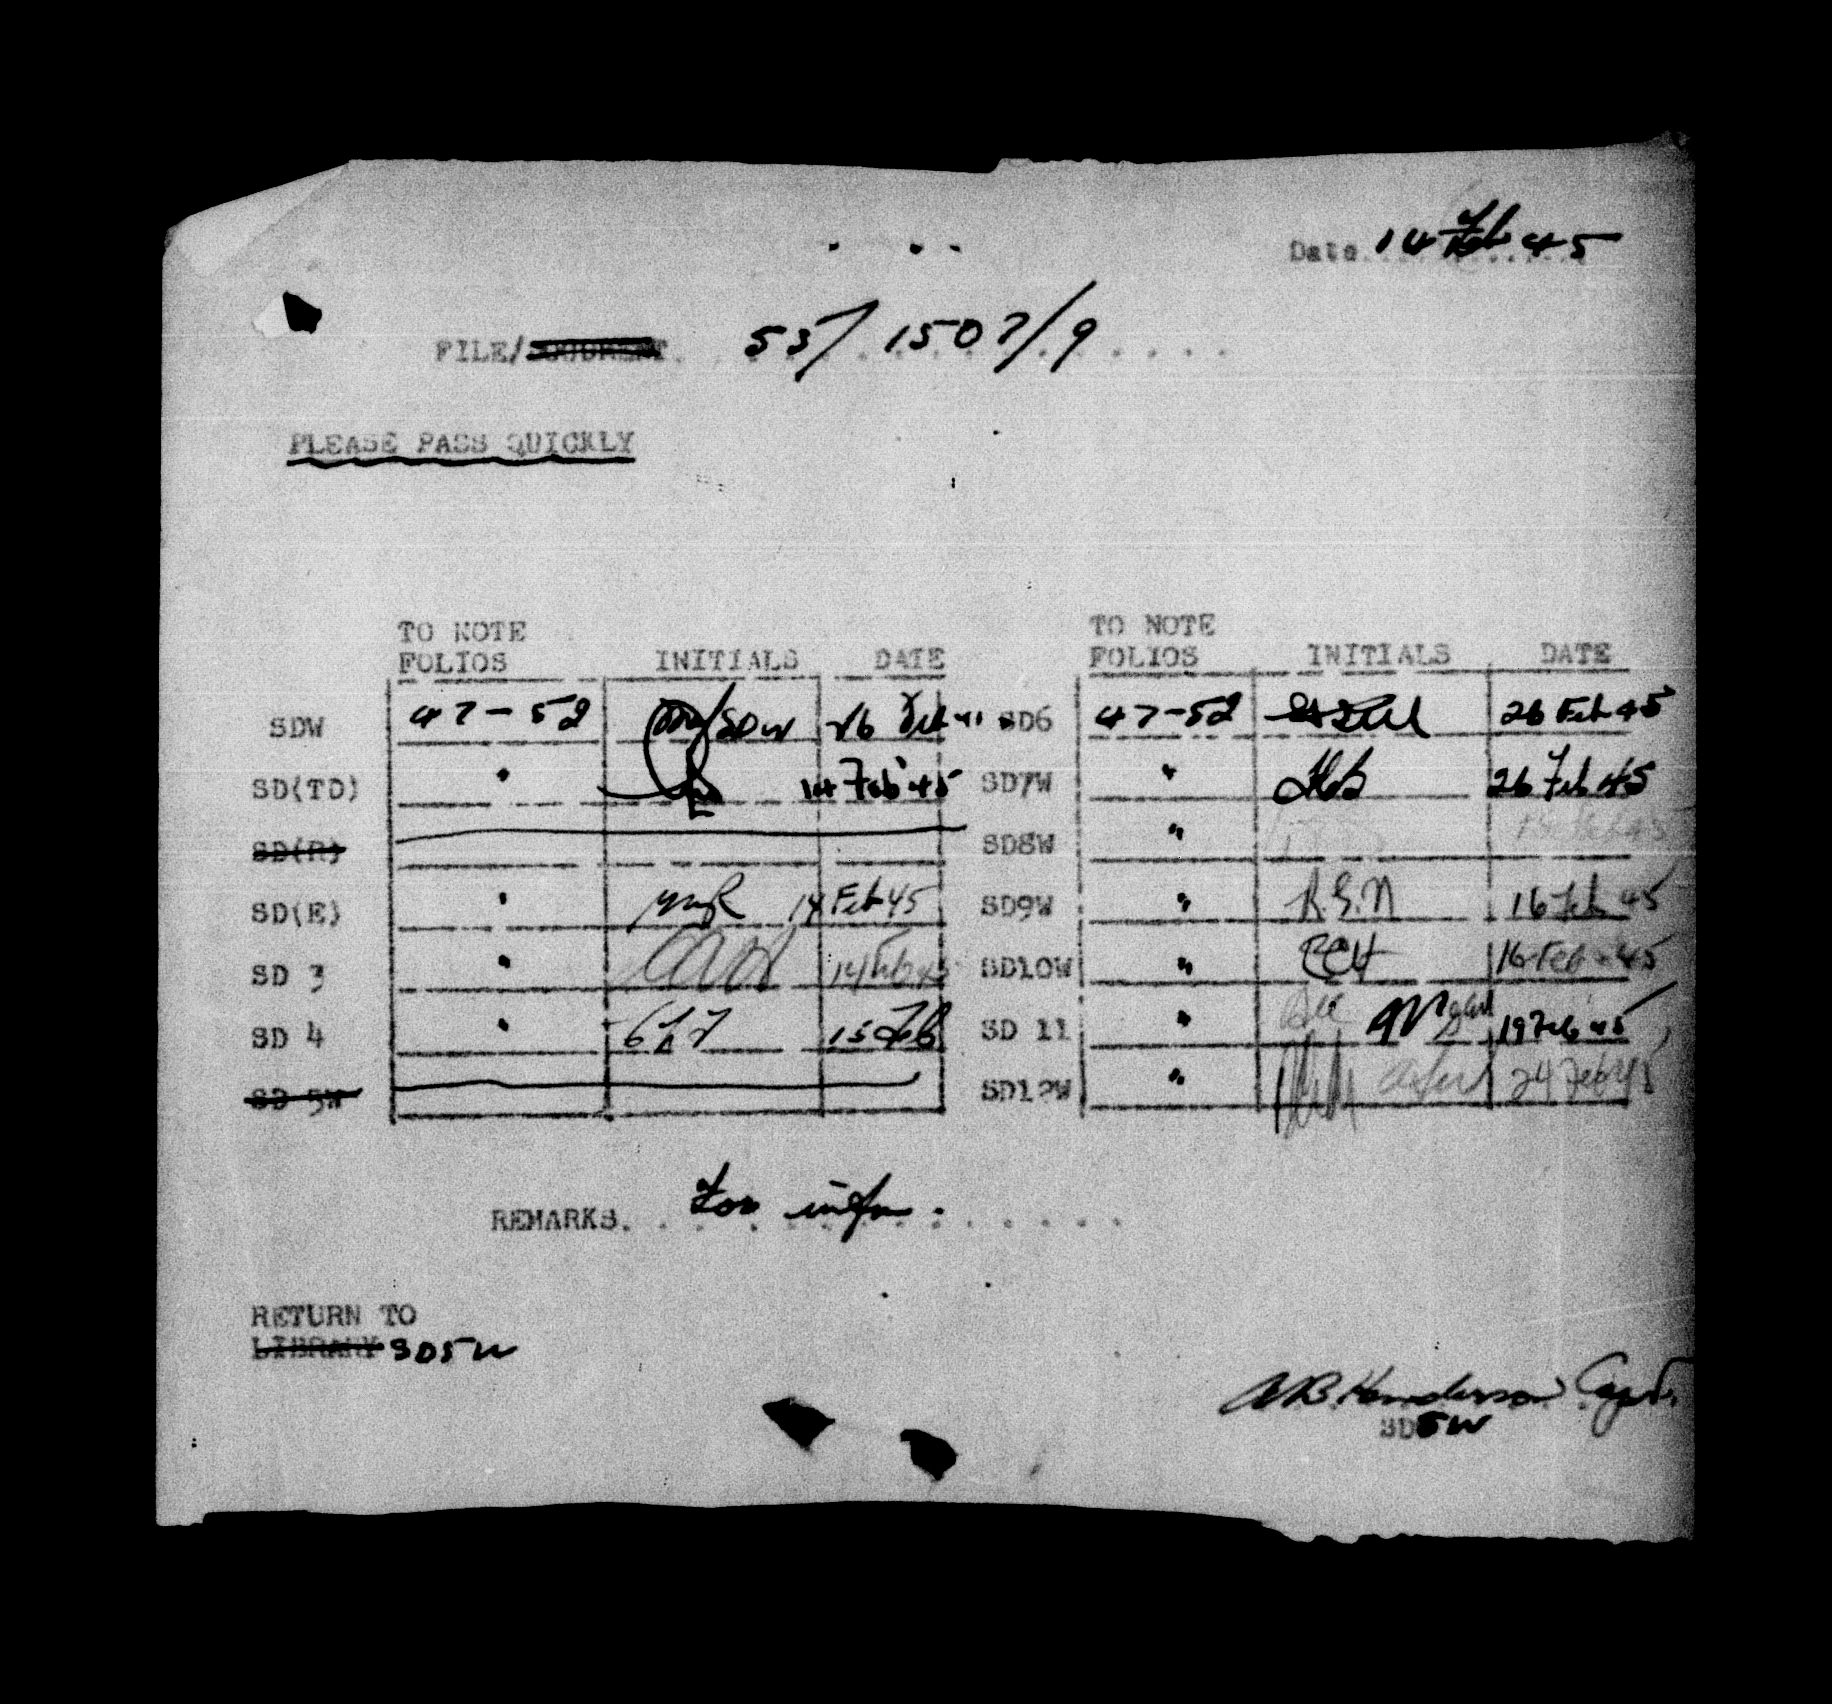 Date 14 Feb 45
FILE/DOCUMENT. 55/1507/9
PLEASE PASS QUICKLY
TO NOTE FOLIOS INITIALS DATE TO NOTE FOLIOS INITIALS DATE
SDW 47-52 SDW 26 Feb SD6 47-52 26 Feb 45
SD(TD) " 14 Feb 45 SD7W " 26 Feb 45
SD(R) SD8W "
SD(E) " 14 Feb 45 SD9W " R.G.N 16 Feb 45
SD 3 " 14 Feb 45 SD10W " 16 Feb 45
SD 4 " 15 Feb SD 11 " 19 Feb 45
SD 5W SD12W " 24 Feb 45
REMARKS. For infm.
RETURN TO
LIBRARY SD5W
Henderson Capt.
SD5W